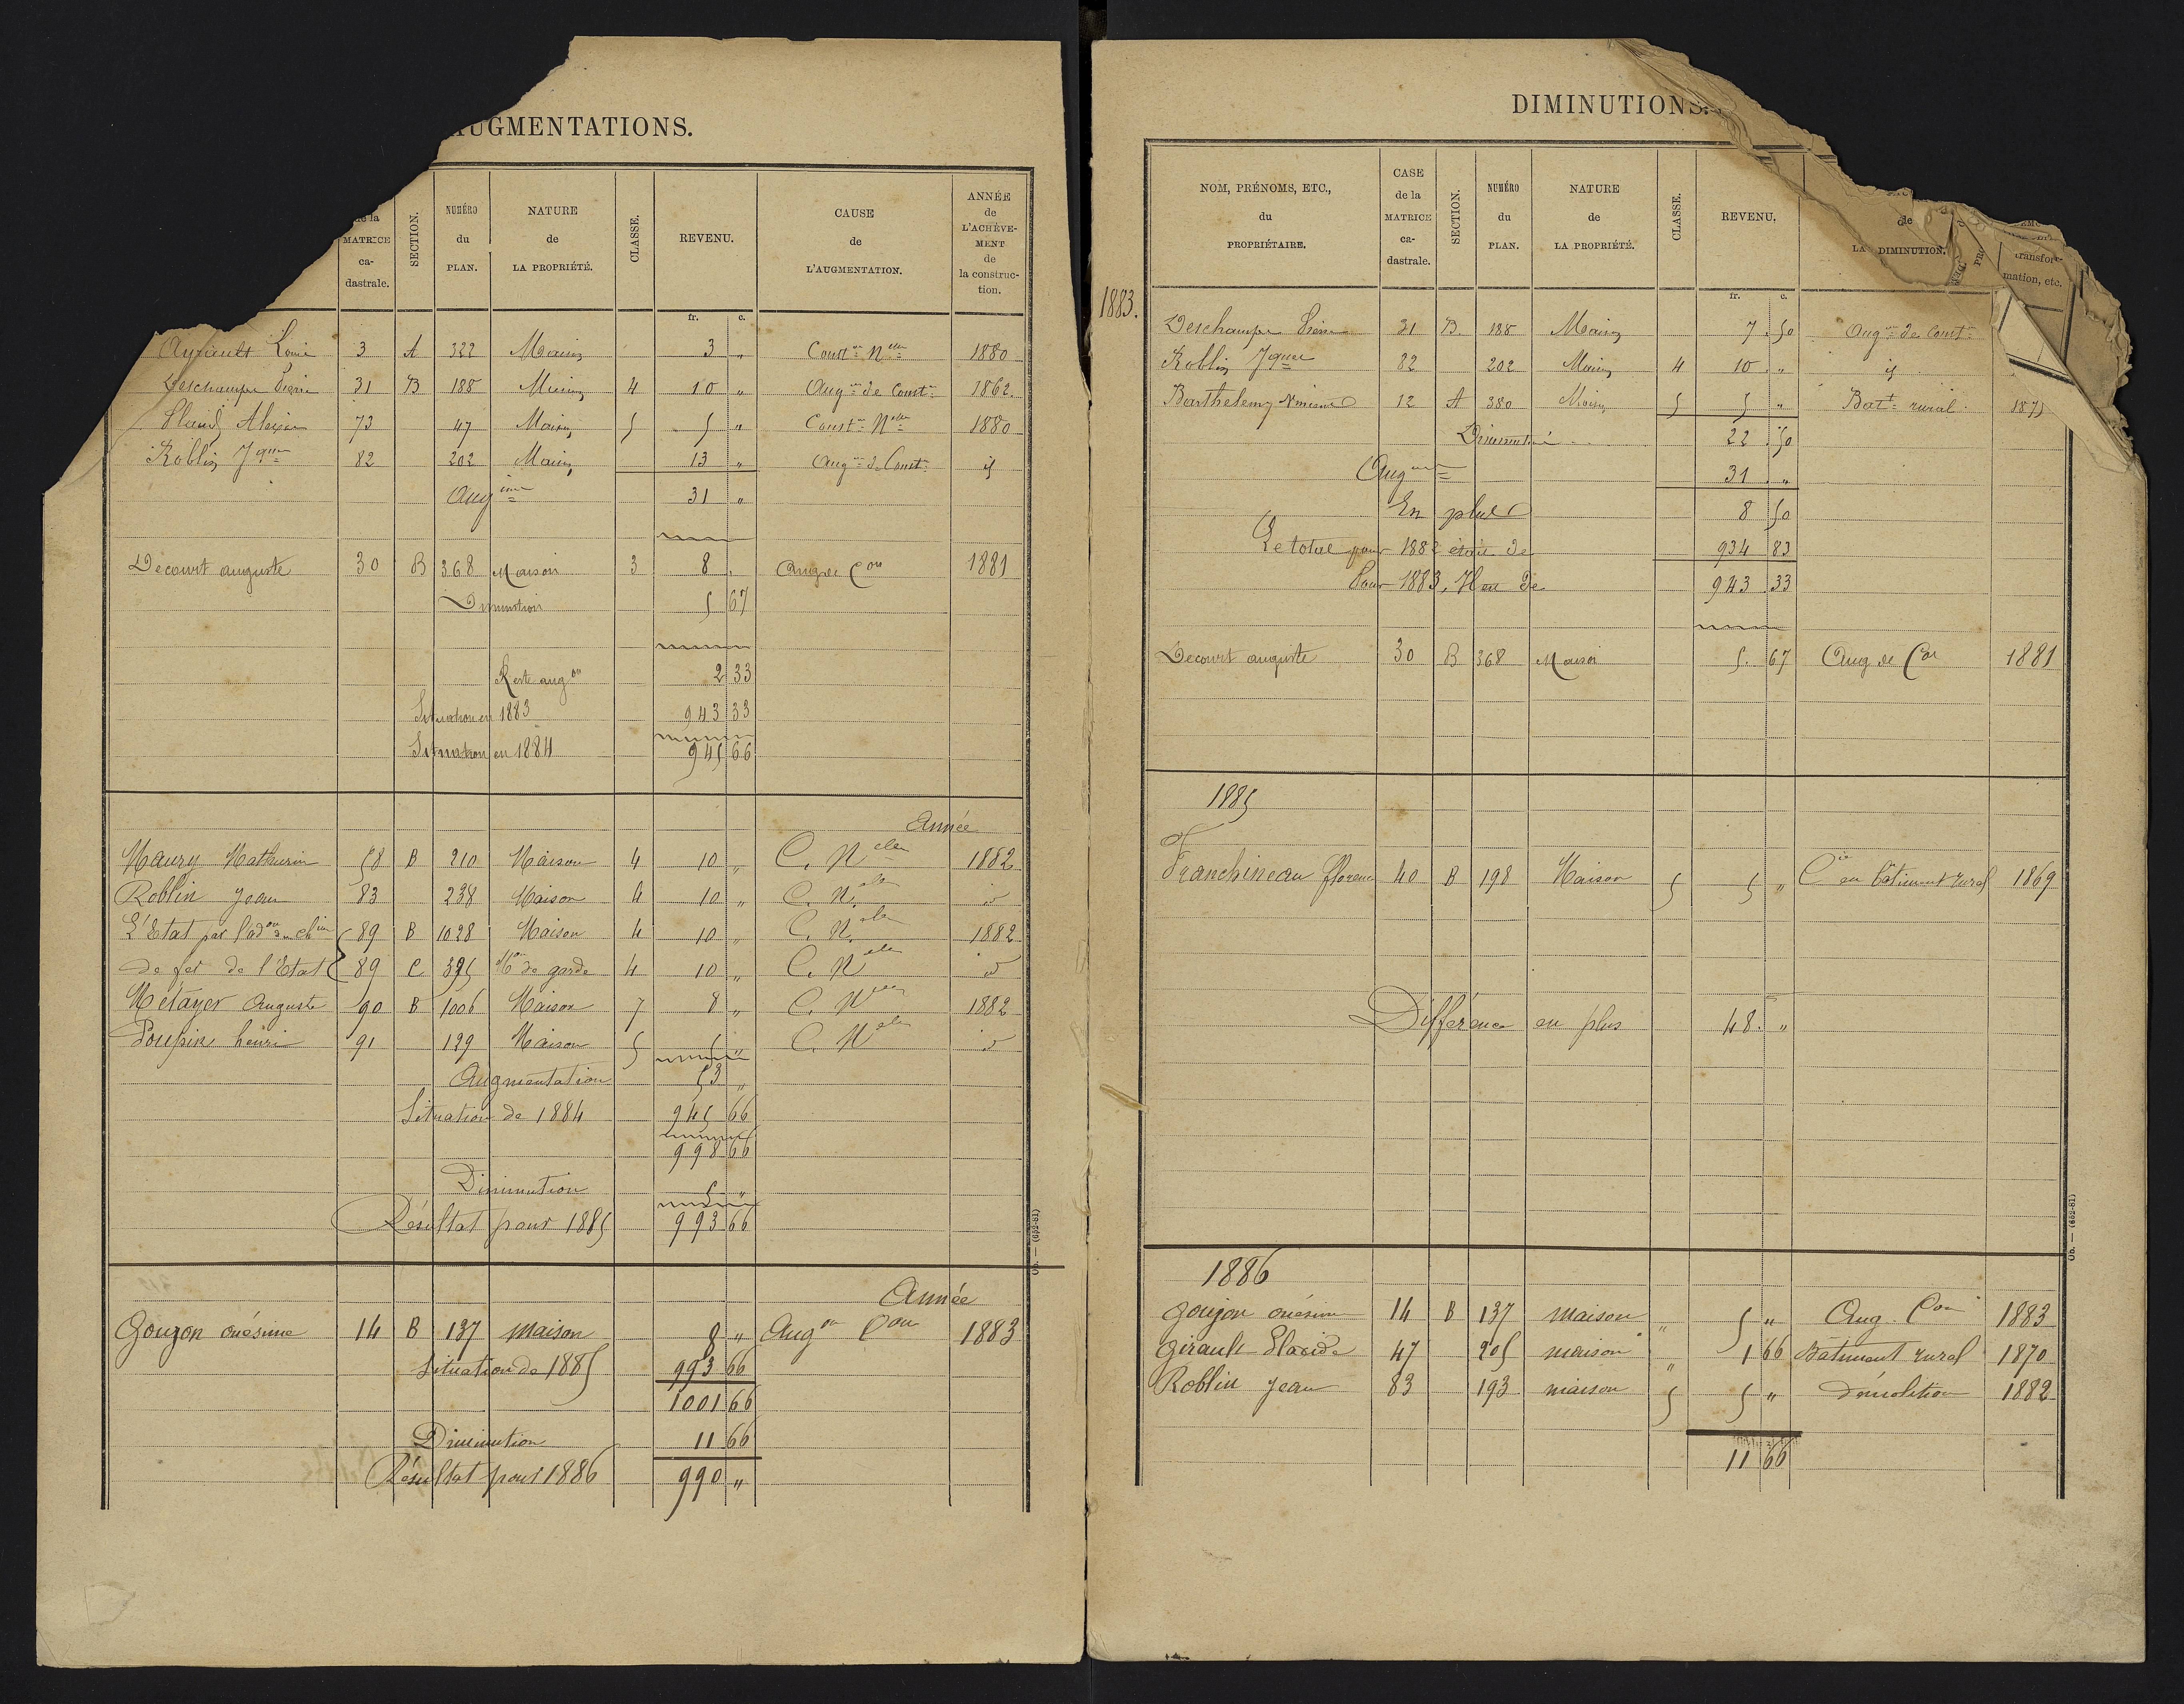 AUGMENTATIONS.
de la MATRICE ca-dastrale. SECTION. NUMÉRO du PLAN. NATURE de LA PROPRIÉTÉ. CLASSE. REVENU. CAUSE de L'AUGMENTATION. ANNÉE de L'ACHÈVE-MENT de la construc-tion.
fr. c.
Louis 3 A 322 Maison 3 „ Conston Nelle 1880
Deschamps Pierre 31 B 188 Maison 4 10 „ Augon de Conston 1862
Alexis 73 47 Maison 5 5 „ Conston Nelle 1880
Roblin 82 202 Maison 13 „ Augon de Conston id
Aug 31 „
Decourt auguste 30 B 368 Maison 3 8 „ Aug de Con 1881
Diminution 5 67
Reste augon 2 33
Situation en 1883 943 33
Situation en 1884 945 66
Année
Maury Mathurin 58 B 210 Maison 4 10 „ C. Nelle 1882
Roblin Jean 83 238 Maison 4 10 „ C. Nelle id
L'Etat par l'adon du chin 89 B 1028 Maison 4 10 „ C. Nelle 1882
de fer de l'Etat 89 C 395 Mon de garde 4 10 „ C. Nelle id
Métayer Auguste 90 B 1006 Maison 7 8 „ C. Nelle 1882
Poupin henri 91 129 Maison 5 5 „ C. Nelle id
Augmentation 53 „
Situation de 1884 945 66
998 66
Diminution 5 „
Résultat pour 1885 993 66
Année
Goujon onésime 14 B 137 maison 8 „ Augon Con 1883
Situation de 1885 993 66
1001 66
Diminution 11 66
Résultat pour 1886 990 „
Ob. — (652-81)
DIMINUTIONS.
NOM, PRÉNOMS, ETC., du PROPRIÉTAIRE. CASE de la MATRICE ca-dastrale. SECTION. NUMÉRO du PLAN. NATURE de LA PROPRIÉTÉ. CLASSE. REVENU. de LA DIMINUTION. transfor-mation, etc.
fr. c.
1883.
Deschamps Pierre 31 B. 188 Maison 7 50 Augon de Conston
Roblin 82 202 Maison 4 10 „ id
Barthelemy 12 A 380 Maison 5 5 „ Batt rural 1875
Diminution 22 50
Aug 31 „
En plus 8 50
Le total pour 1882 était de 934 83
Pour 1883, il est de 943 33
Decourt auguste 30 B 368 Maison 5 67 Aug de Con 1881
1885
Franchineau florence 40 B 198 Maison 5 5 „ Cie en bâtiment rural 1869
Différence en plus 48 „
1886
Goujon onésime 14 B 137 maison „ 5 „ Aug. Con 1883
Girault Placide 47 205 maison „ 1 66 Bâtiment rural 1870
Roblin Jean 83 193 maison 5 5 „ démolition 1882
11 66
Ob. — (652-81)